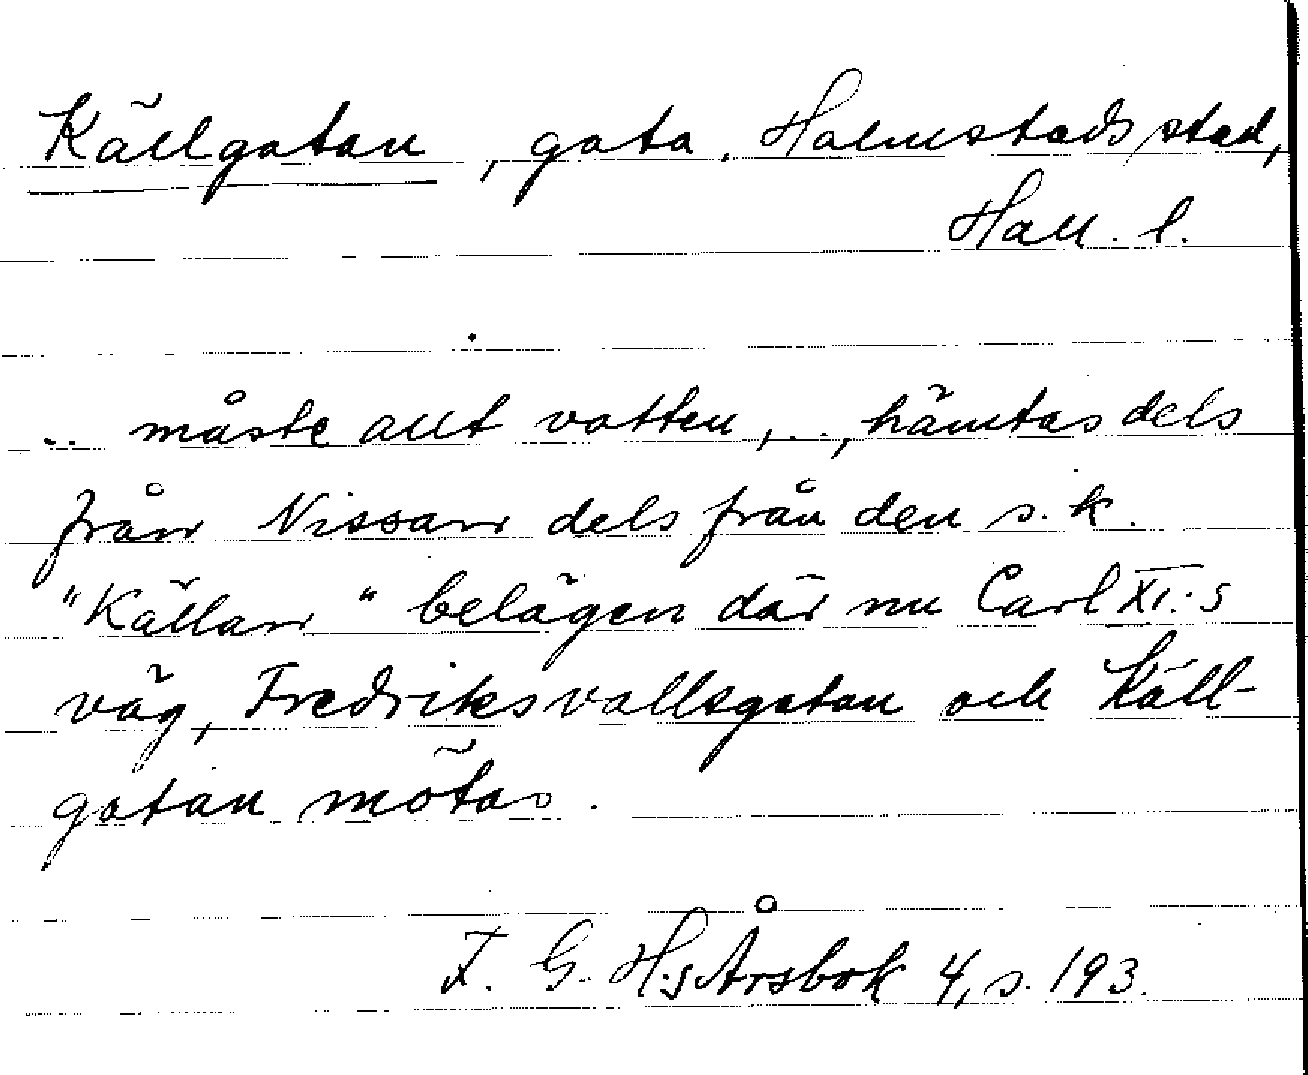 Källgatan, gata, Halmstads stad,
Hall. l.
.. måste allt vatten, .., hämtas dels
från Nissan dels från den s.k.
"Källan" belägen där nu Carl XI:s
väg, Fredriksvallsgatan och Käll-
gatan mötas.
F. G. H:s Årsbok 4, s. 193.